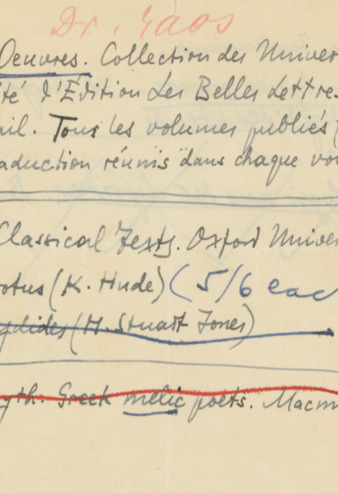 Dr. Gaos
Oeuvres. Collection des Univer
té d'Édition Les Belles Lettres
ail. Tous les volumes publiés (
aduction réunis dans chaque vo
Classical Texts. Oxford Univer
otus (K. Hude) (5/6 eac
ydides (H. Stuart Jones)
yth. Greek melic poets. Macm